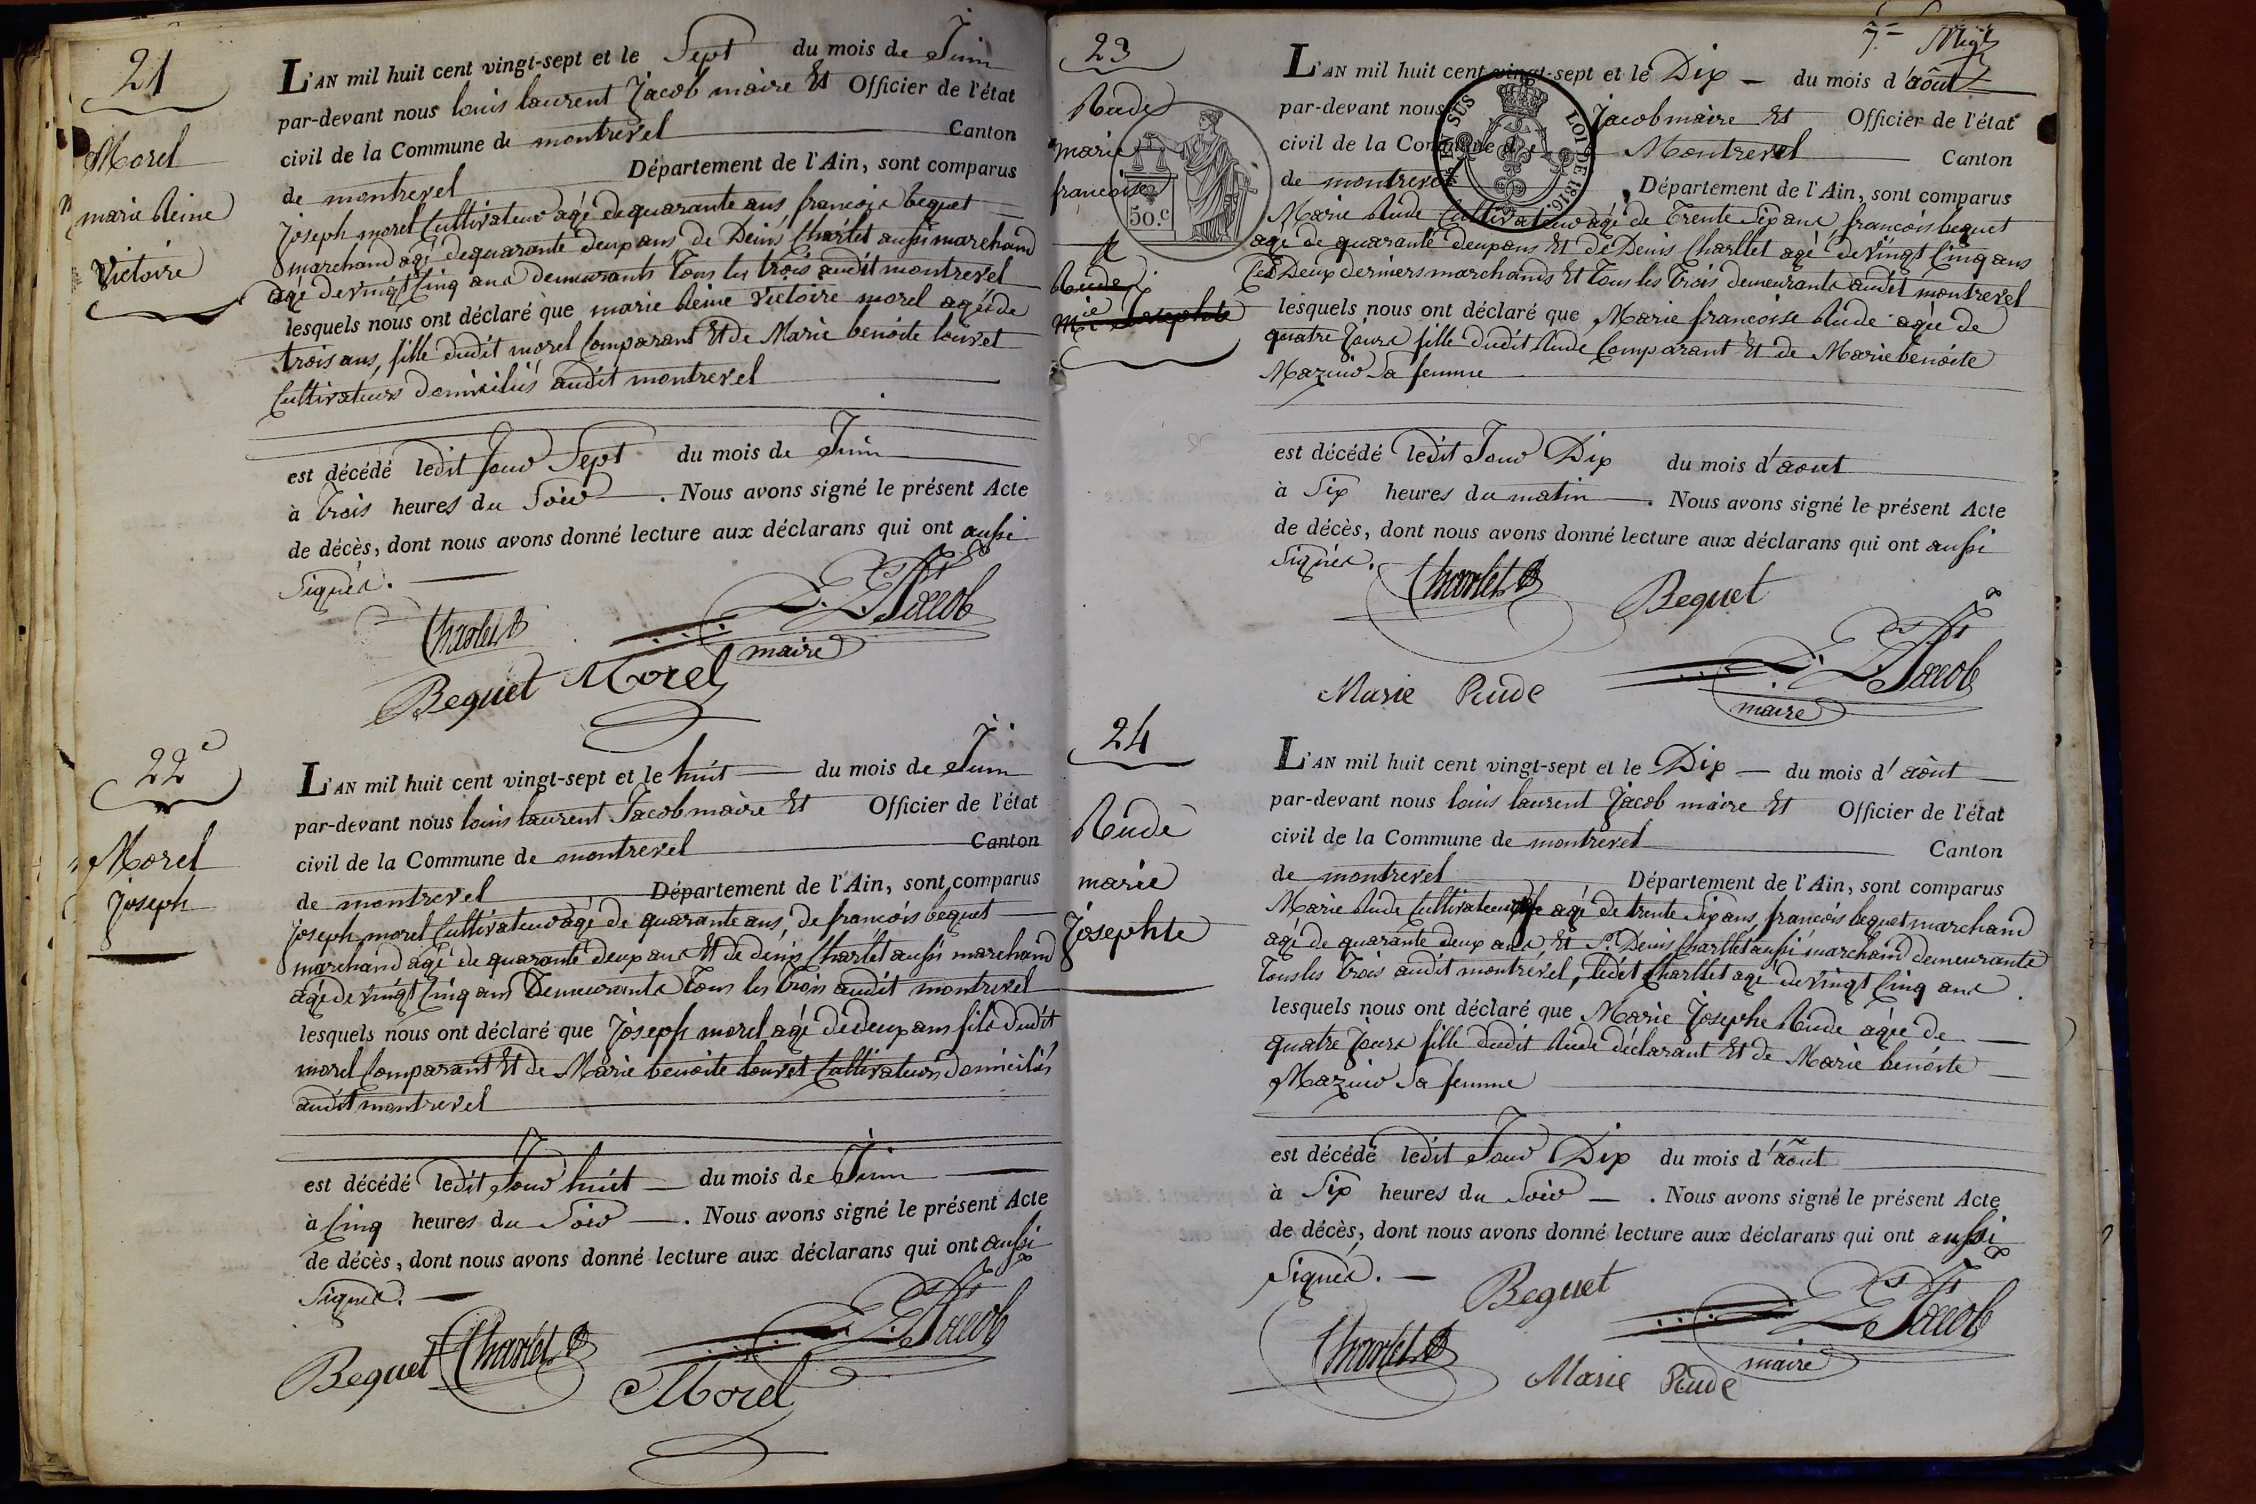 21
Morel
marie Reine
Victoire
L'AN mil huit cent vingt-sept et le Sept du mois de Juin
par-devant nous louis laurent Jacob maire Et Officier de l'état
civil de la Commune de montrevel Canton
de montrevel Département de l'Ain, sont comparus
joseph morel Cultivateur agé de quarante ans, françois bequet
marchand agé de quarante deux ans de Denis Charlet aussi marchand
agé de vingt Cinq ans demeurants Tous les trois audit montrevel
lesquels nous ont déclaré que marie Reine Victoire morel agée de
trois ans, fille dudit morel Comparant Et de Marie benoite louvet
Cultivateurs domiciliés audit montrevel
est décédé ledit Jour Sept du mois de Juin
à trois heures du Soir. Nous avons signé le présent Acte
de décès, dont nous avons donné lecture aux déclarans qui ont aussi
Signés.
Charlet
L. L. Jacob
maire
Bequet Morel
22e
Morel
joseph
L'AN mil huit cent vingt-sept et le huit du mois de Juin
par-devant nous louis laurent Jacob maire Et Officier de l'état
civil de la Commune de montrevel Canton
de montrevel Département de l'Ain, sont comparus
joseph morel Cultivateur agé de quarante ans, de françois bequet
marchand agé de quarante deux ans Et de denis Charlet aussi marchand
agé de vingt Cinq ans Demeurants Tous les trois audit montrevel
lesquels nous ont déclaré que joseph morel agé de deux ans fils dudit
morel Comparant Et de Marie benoite louvet Cultivateurs domiciliés
audit montrevel
est décédé ledit Jour huit du mois de Juin
à Cinq heures du Soir. Nous avons signé le présent Acte
de décès, dont nous avons donné lecture aux déclarans qui ont aussi
Signés.
Bequet Charlet L. L. Jacob
Morel
7e
23
Rude
marie
françoise
&
Rude
Mie Josephte
50.c
EN SUS
LOI DE 1816.
L'AN mil huit cent vingt-sept et le Dix du mois d'août
par-devant nous Jacob maire Et Officier de l'état
civil de la Commune de Montrevel Canton
de montrevel Département de l'Ain, sont comparus
Marie Rude Cultivateur agé de Trente Six ans françois bequet
agé de quarante deux ans Et de Denis Charllet agé de Vingt Cinq ans
les Deux derniers marchands Et tous les trois demeurants audit montrevel
lesquels nous ont déclaré que Marie françoise Rude agée de
quatre Jours fille dudit Rude Comparant Et de Marie benoite
Mazuir Sa femme
est décédé ledit Jour Dix du mois d'aout
à Six heures du matin. Nous avons signé le présent Acte
de décès, dont nous avons donné lecture aux déclarans qui ont aussi
Signés.
Charlet Bequet
L. L. Jacob
maire
Marie Rude
24
Rude
marie
josephte
L'AN mil huit cent vingt-sept et le Dix du mois d'août
par-devant nous louis laurent Jacob maire Et Officier de l'état
civil de la Commune de montrevel Canton
de montrevel Département de l'Ain, sont comparus
Marie Rude Cultivateur agé de trente Six ans, françois bequet marchand
agé de quarante deux ans, Et Sr. Denis Charllet aussi marchand demeurants
Tous les trois audit montrevel, ledit Charllet agé de vingt Cinq ans
lesquels nous ont déclaré que Marie Josephe Rude agée de
quatre Jours fille dudit Rude déclarant Et de Marie benoite
Mazuir Sa femme
est décédé ledit Jour Dix du mois d'août
à Six heures du Soir. Nous avons signé le présent Acte
de décès, dont nous avons donné lecture aux déclarans qui ont aussi
Signés.
Bequet
L. L. Jacob
maire
Charlet
Marie Rude